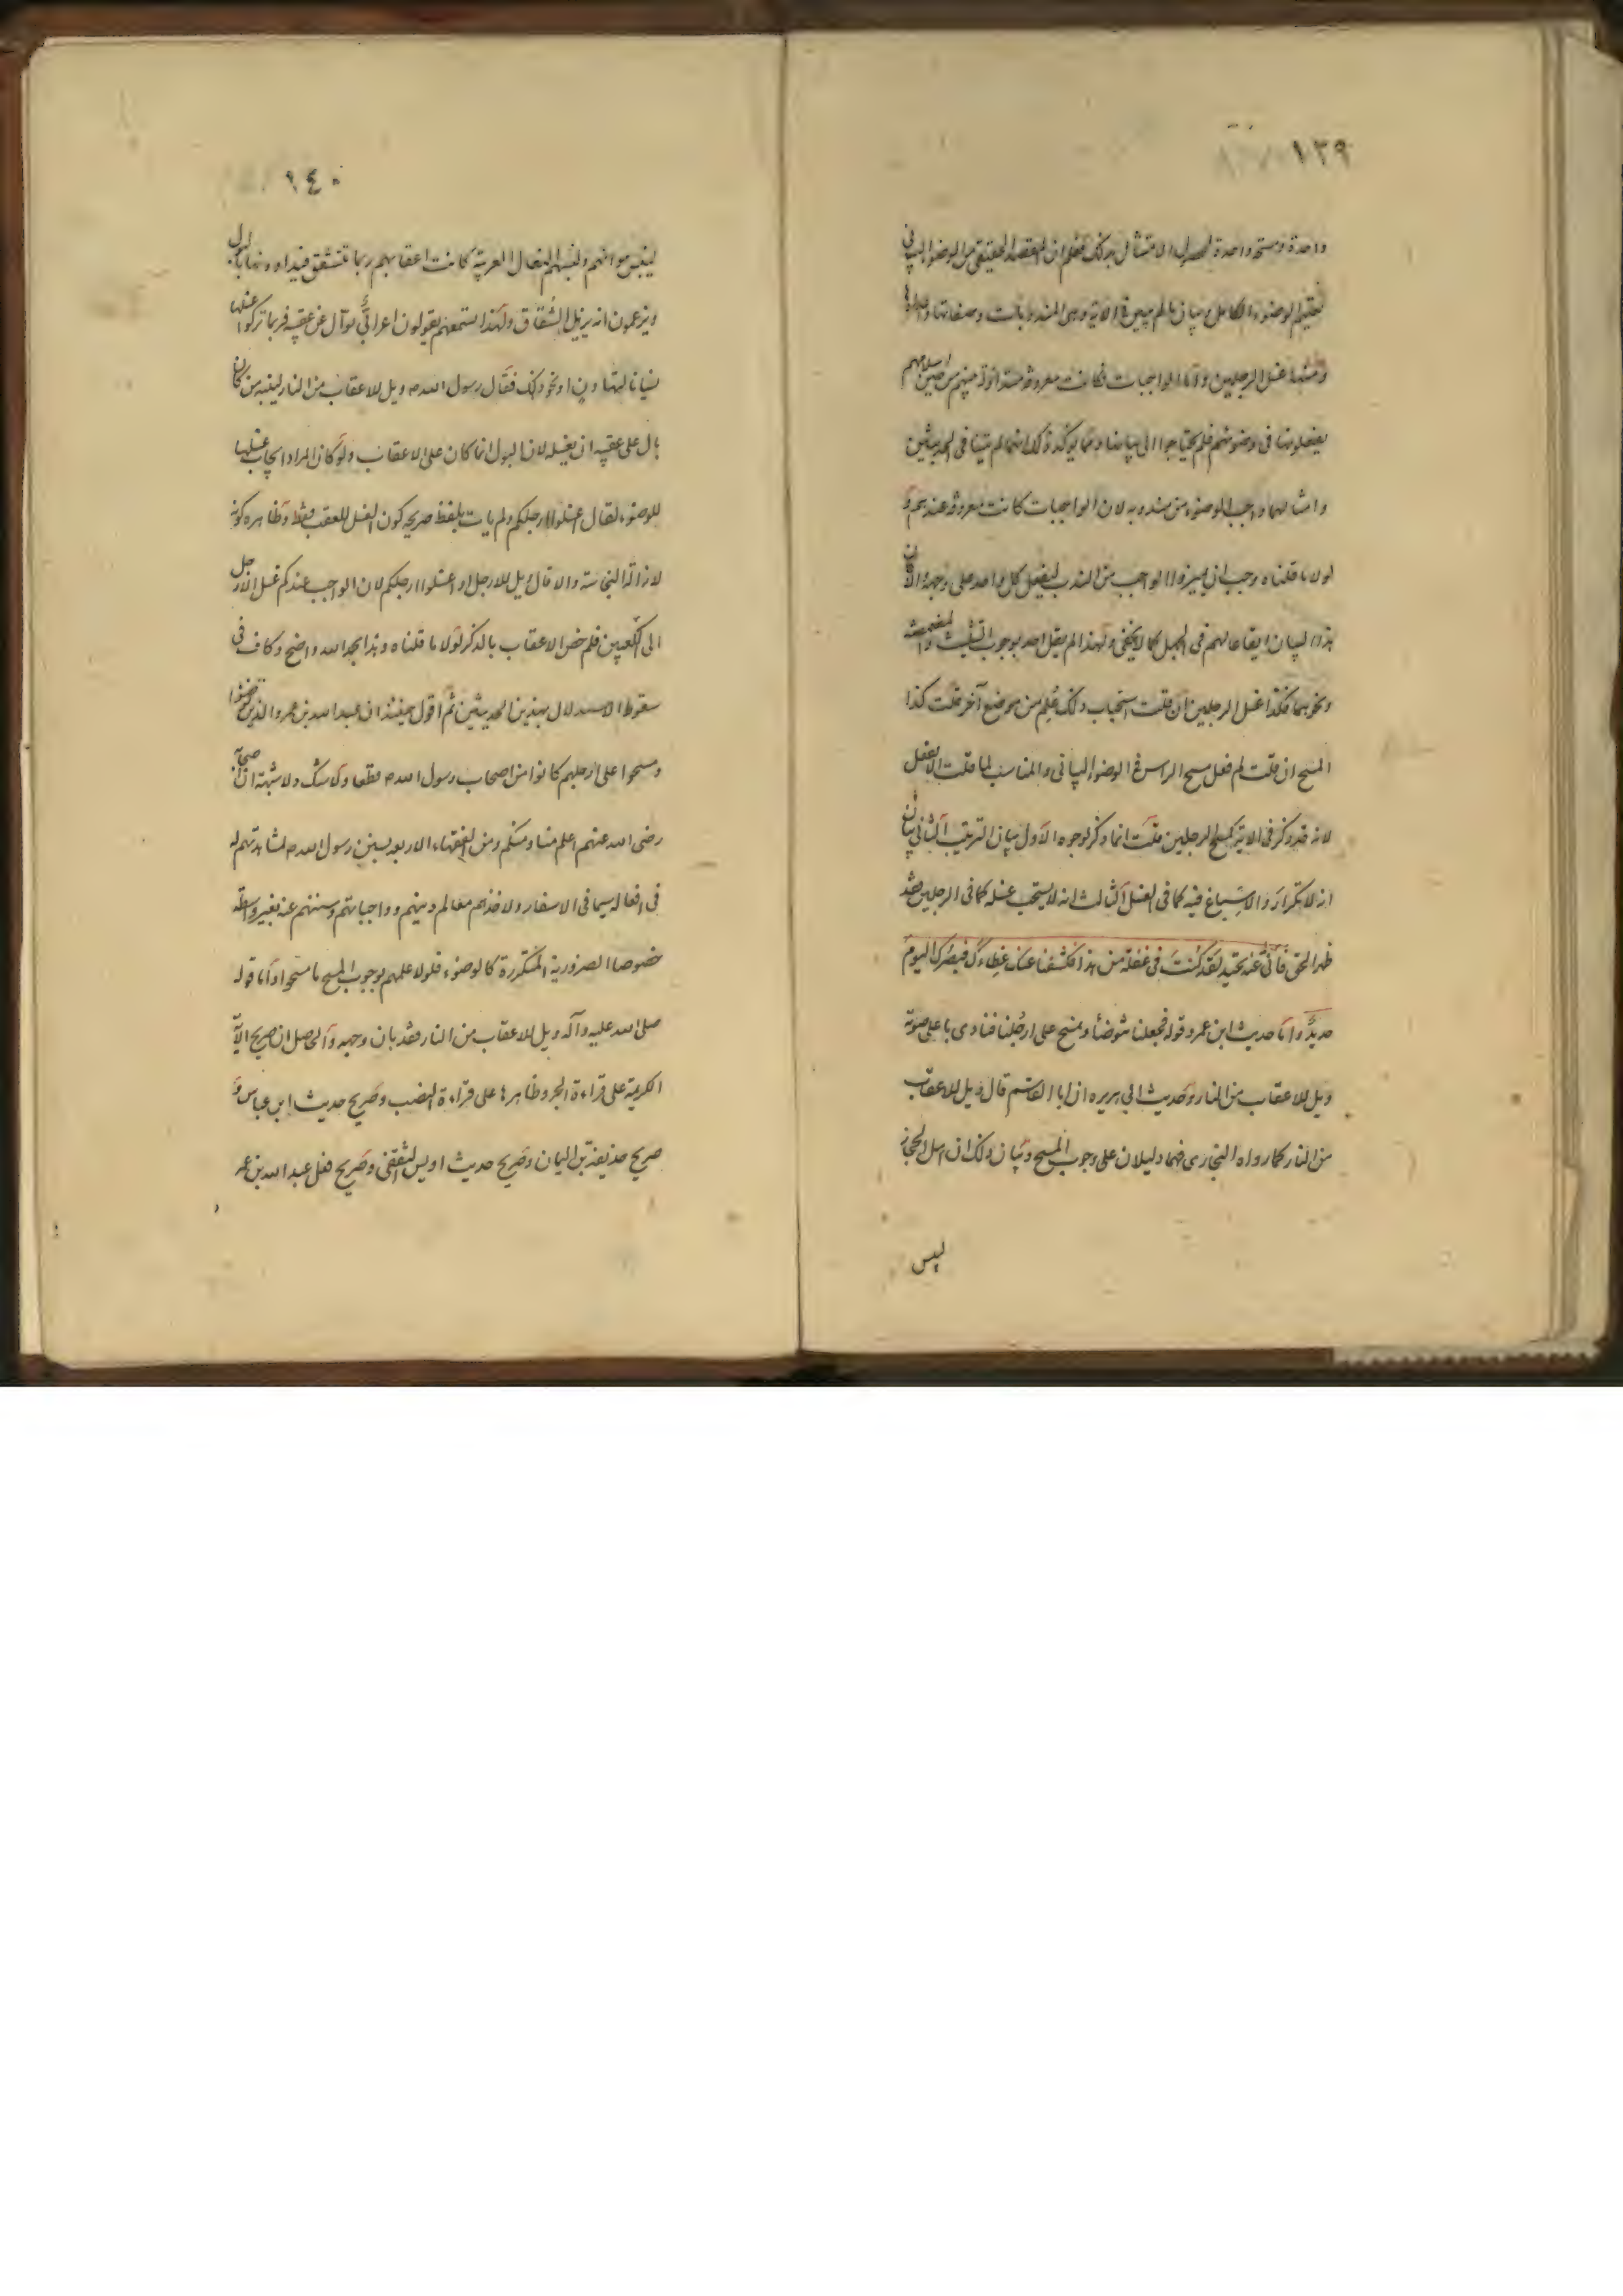 ١٣٩
واحدة ومسحة واحدة لحصول الامتثال بذلك فعلم ان المقصد الحقيقي من الوضوء البياني
تعليم الوضوء الكامل وبيان ما لم يبين في الاية وهي المندوبات وصفاتها
ومنها غسل الرجلين واما الواجبات فكانت معروفة منهم من حين اسلامهم
يفعلونها في وضوئهم فلم يحتاجوا الى بيانها ومما يؤكد ذلك انهما لم يبينا في الحديثين
وامثالهما واجب الوضوء من مندوبه لان الواجبات كانت معروفة عندهم و
لولا ما قلناه وجب ان يميزوا الواجب من الندب ليفعل كل واحد على وجهه لان
هذا البيان ايقاع لهم في الجهل كما لا يخفى ولهذا لم يقل احد بوجوب التثليث والمضمضة
ونحوهما فكذا غسل الرجلين ان قلت استحباب ذلك علم من موضع آخر قلت كذا
المسح ان قلت لم فعل مسح الراس في الوضوء البياني والمناسب لما قلت الا يفعل
لانه قد ذكر في الاية كمسح الرجلين قلت انما ذكر لوجوه الاول بيان الترتيب الثاني بيان
انه لا تكرار والاسباغ فيه كما في الغسل الثالث انه لا يستحب غسله كما في الرجلين فقد
ظهر الحق فاني عنه تحيد لقد كنت في غفلة من هذا فكشفنا عنك غطاءك فبصرك اليوم
حديد واما حديث ابن عمر وقوله فجعلنا نتوضأ ونمسح على ارجلنا فنادى باعلى صوته
ويل للاعقاب من النار وحديث ابي هريره ان ابا القاسم قال ويل للاعقاب
من النار كما رواه البخاري فهما دليلان على وجوب المسح وبيان ذلك ان اهل الحجاز
ليبس
١٤٠
ليبس هوائهم ولبسهم النعال العربية كانت اعقابهم ربما تتشقق فيداوونها بالبول
ويزعمون انه يزيل الشقاق ولهذا نسمعهم يقولون اعرابي بوال على عقبيه فربما تركوا غسلها
نسيانا او تهاونا او نحو ذلك فقال رسول الله ص ويل للاعقاب من النار لينبه من كان
بال على عقبه ان يغسله لان البول انما كان على الاعقاب ولو كان المراد ايجاب غسلها
للوضوء لقال اغسلوا ارجلكم ولم يات بلفظ صريحه كون الغسل للعقب فقط وظاهره كونه
لازالة النجاسة والا قال ويل للارجل او اغسلوا ارجلكم لان الواجب عندكم غسل الارجل
الى الكعبين فلم خص الاعقاب بالذكر لولا ما قلناه وهذا بحمد الله واضح وكاف في
سقوط الاستدلال بهذين الحديثين ثم اقول حينئذ ان عبد الله بن عمر والذين توضؤا
ومسحوا على ارجلهم كانوا من اصحاب رسول الله ص قطعا ولا شك ولا شبهة ان الصحابة
رضي الله عنهم اعلم منا ومنكم ومن الفقهاء الاربعه بسنن رسول الله ص لمشاهدتهم له
في افعاله سيما في الاسفار ولاخذهم معالم دينهم وواجباتهم وسننهم عنه بغير واسطة
خصوصا الضرورية المتكررة كالوضوء فلولا علمهم بوجوب المسح ما مسحوا واما قوله
صلى الله عليه وآله ويل للاعقاب من النار فقد بان وجهه والحاصل ان صريح الآية
الكريمة على قراءة الجر وظاهرها على قراءة النصب وصريح حديث ابن عباس و
صريح حذيفة بن اليمان وصريح حديث اويس الثقفي وصريح فعل عبد الله بن عمر